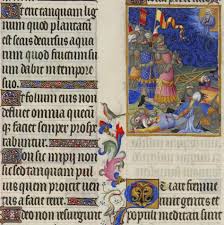 Et erit tanquam lig
num quod plantatu
est secus decursus aqua
rum quod fructum su
um dabit in tempore
suo
Et folium eius non
defluet omnia
que faciet semper prospe
rabuntur
Non sic impii non
sic sed tanquam pul
uis quem proicit uen
tus a facie terre
Ideo non resurgunt
gentes et
populi meditati sunt